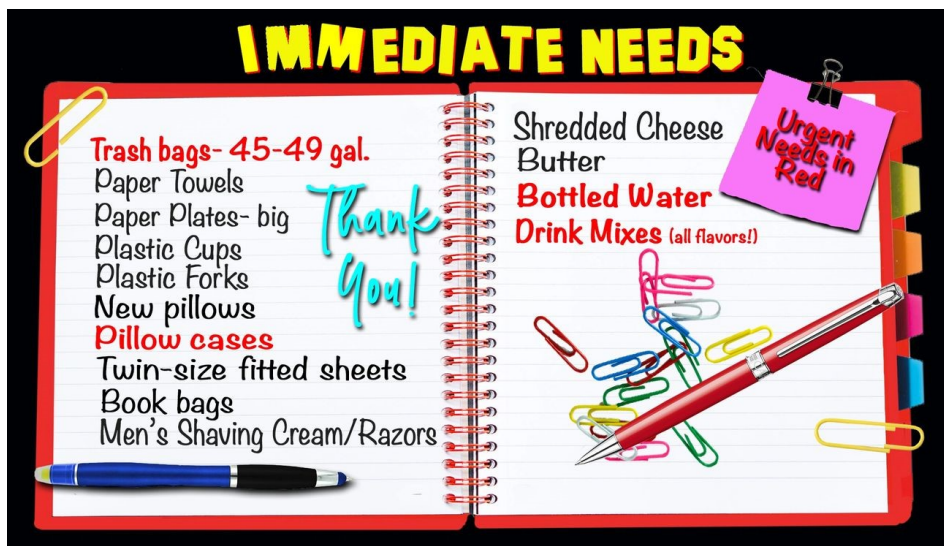 IMMEDIATE NEEDS
Trash bags- 45-49 gal.
Paper Towels
Paper Plates- big
Plastic Cups
Plastic Forks
New pillows
Pillow cases
Twin-size fitted sheets
Book bags
Men's Shaving Cream/Razors
Thank
You!
Shredded Cheese
Butter
Bottled Water
Drink Mixes (all flavors!)
Urgent
Needs in
Red